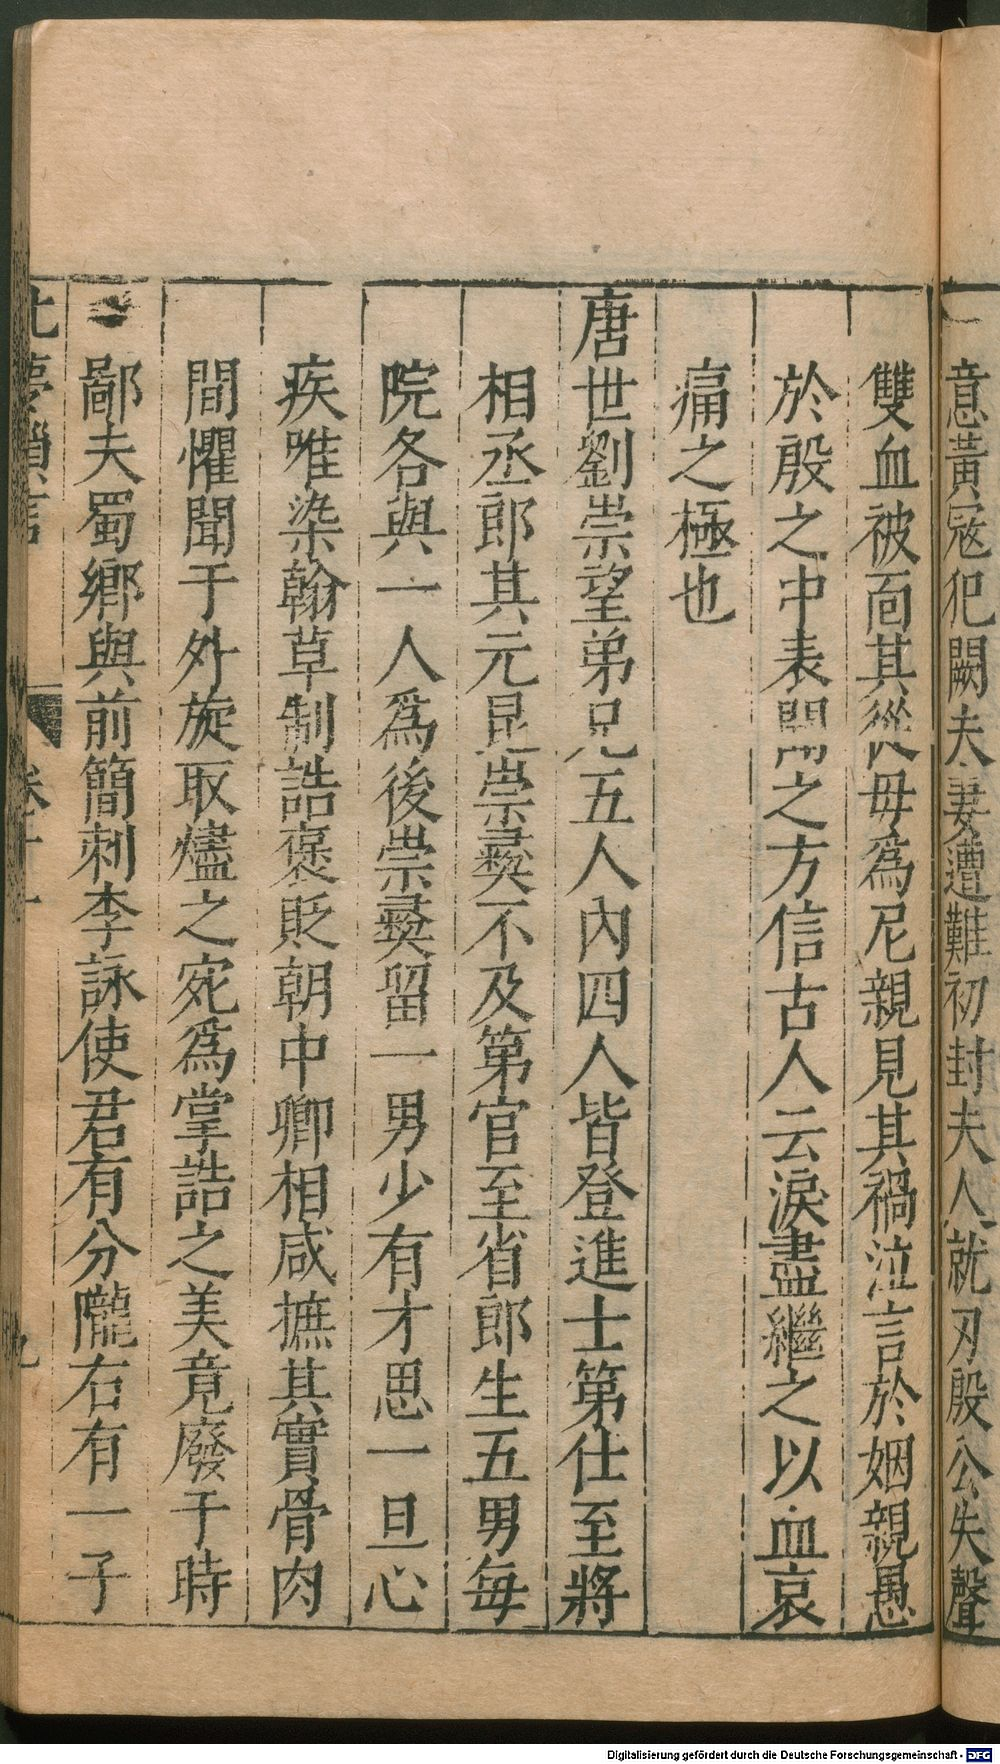 意黃冦犯闕夫妻遭難初封夫人就刃殷公失聲
雙血被靣其從母爲尼親見其禍泣言於姻親愚
於殷之中表聞之方信古人云淚盡繼之以血哀
痛之極也
唐世劉崇望弟兄五人內四人皆登進士第仕至將
相丞郎其元昆崇彛不及第官至省郎生五男每
院各與一人爲後崇彛留一男少有才思一旦心
疾唯染翰草制誥褒貶朝中卿相咸摭其實骨肉
間懼聞于外旋取燼之宛爲掌誥之美竟廢于時
鄙夫蜀鄉與前簡刺李詠使君有分隴右有一子
北夢瑣言 卷十一 九
Digitalisierung gefördert durch die Deutsche Forschungsgemeinschaft - DFG